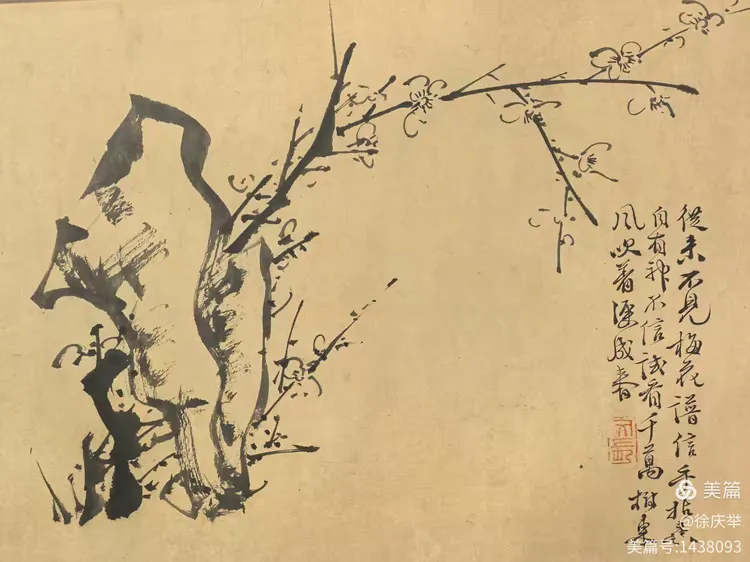 從来不見梅花譜信手拈来
自有神不信試看千萬樹東
風吹着便成春
美篇
@徐庆举
美篇号:1438093